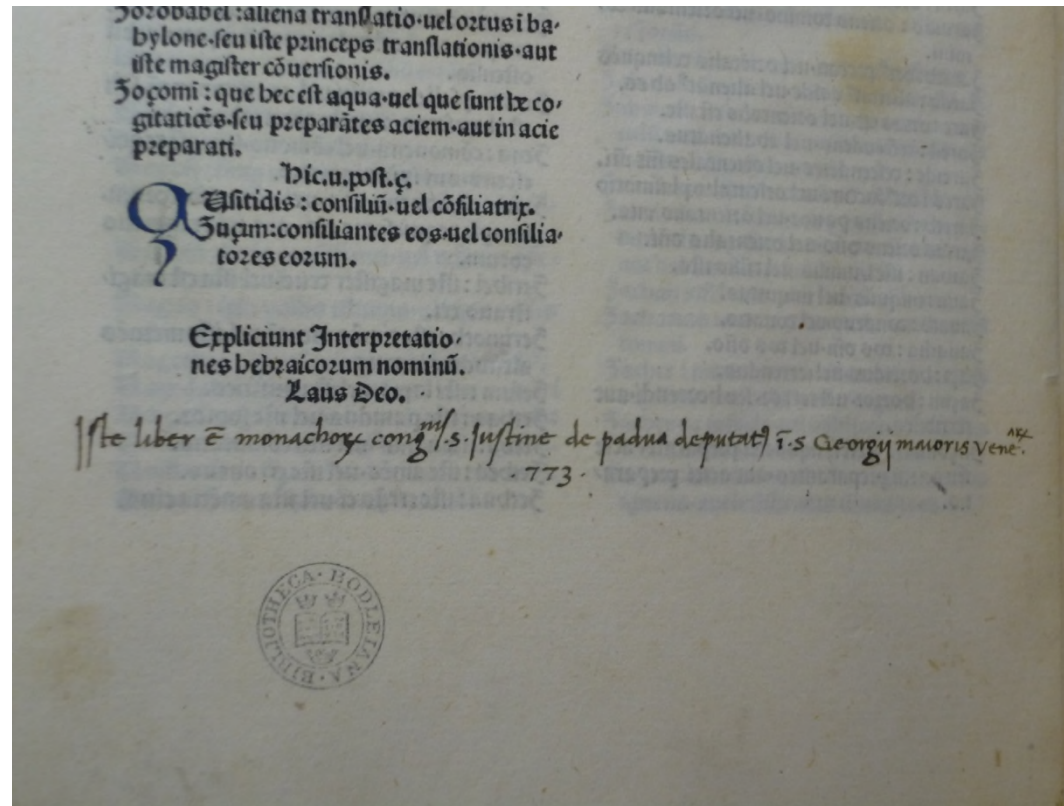 Zorobabel : aliena translatio·uel ortus ī ba,
bylone·seu iste princeps translationis·aut
iste magister cōuersionis.
Zoçomi : que hec est aqua·uel que sunt he co,
gitatiōes·seu preparātes aciem·aut in acie
preparati.
Hic.u.post.ç.
QUsitidis : consiliū·uel cōsiliatrix.
Zuçim:consiliantes eos·uel consilia,
tores eorum.
Expliciunt Interpretatio,
nes hebraicorum nominū.
Laus Deo.
Iste liber ē monachoꝝ congnis/·s·Justine de padua deputatꝰ ī·s Georgij maioris veneꝝ.
·773·
BIBLIOTHECA·BODLEIANA·